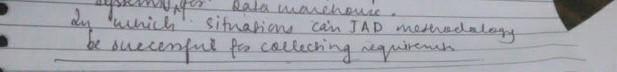 system, for Data warehouse.
In which situations can JAD methodology
be successful for collecting requirements